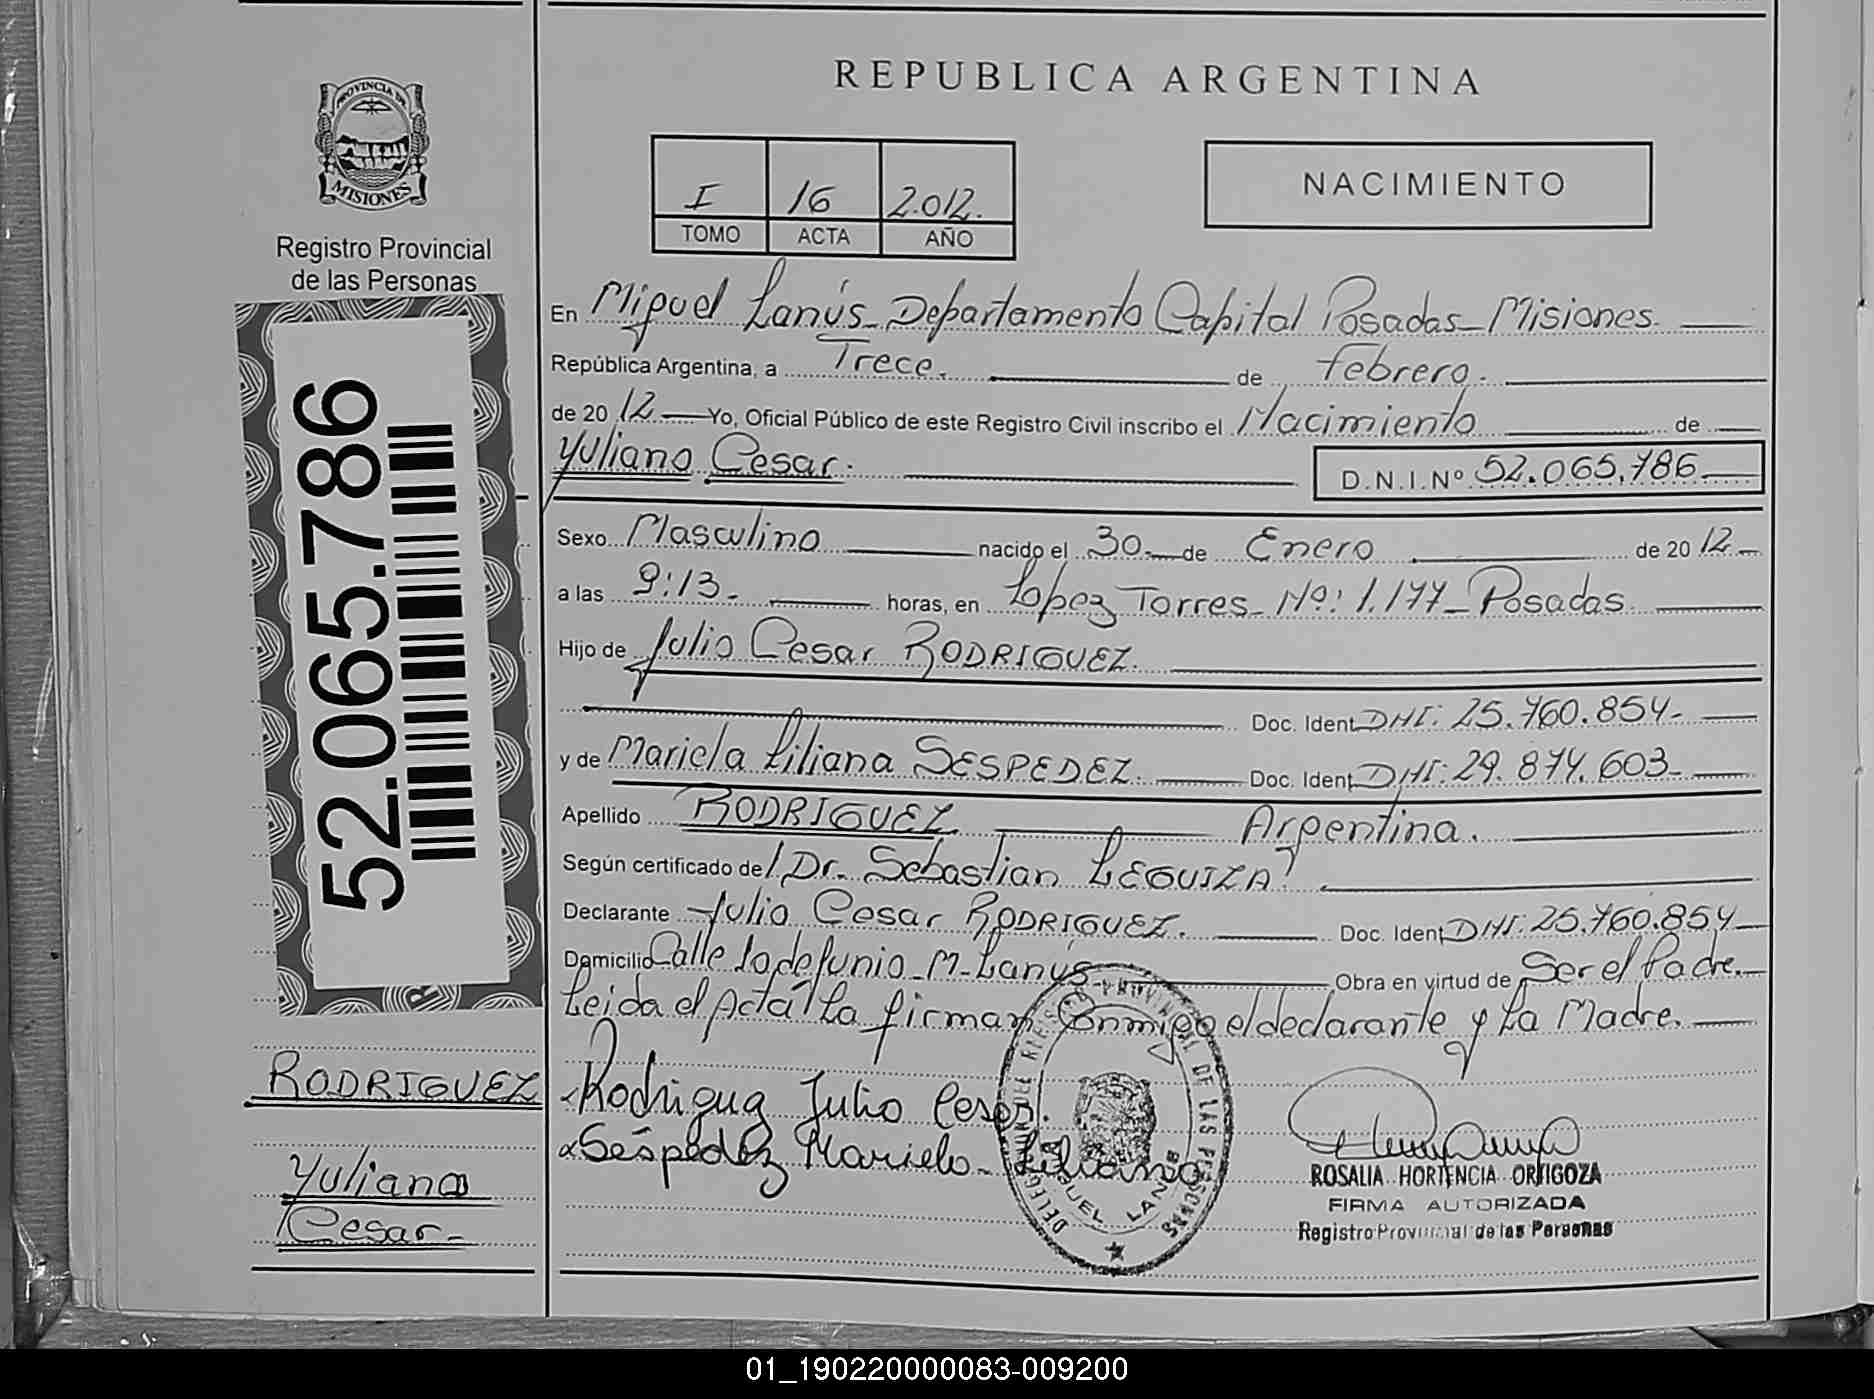 REPUBLICA ARGENTINA
PROVINCIA DE
MISIONES
Registro Provincial
de las Personas
I 16 2.012.
TOMO ACTA AÑO
NACIMIENTO
52.065.786
En Miguel Lanús - Departamento Capital Posadas - Misiones.
República Argentina, a Trece. de febrero.
de 20 12 Yo, Oficial Público de este Registro Civil inscribo el Nacimiento de
Yuliano Cesar. D.N.I.Nº 52.065.786
Sexo Masculino nacido el 30 de Enero de 2012
a las 9:13. horas, en Lopez Torres - Nº: 1.177 - Posadas.
Hijo de Julio Cesar RODRIGUEZ.
Doc. Ident. DNI: 25.760.854-
y de Mariela Liliana SESPEDEZ. Doc. Ident. DNI: 29.874.603-
Apellido RODRIGUEZ Argentina.
Según certificado de / Dr. Sebastian LEGUIZA
Declarante Julio Cesar RODRIGUEZ. Doc. Ident. DNI: 25.760.854
Domicilio Calle M- Lanús Obra en virtud de Ser el Padre.
Leida el Acta La firman Conmigo el declarante y La Madre.
RODRIGUEZ
Yuliano
Cesar-
Rodriguez Julio Cesar.
Sespedez Mariela - Liliana
DE LAS PERSONAS
MIGUEL LANUS
ROSALIA HORTENCIA ORTIGOZA
FIRMA AUTORIZADA
Registro Provincial de las Personas
01_190220000083-009200